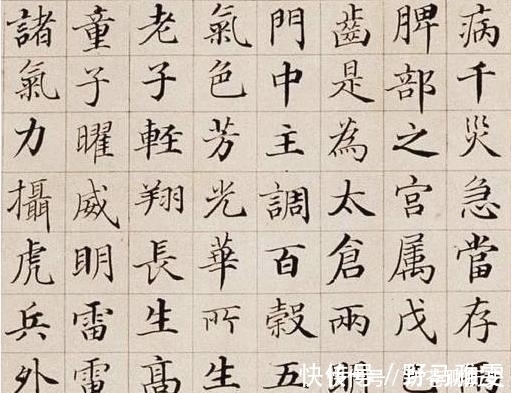 病千災急當存
脾部之宮属戊己
齒是為太倉兩明
門中主調百穀五
氣色芳光華所生
老子輕翔長生高
童子曜威明雷雷
諸氣力攝虎兵外
快传号